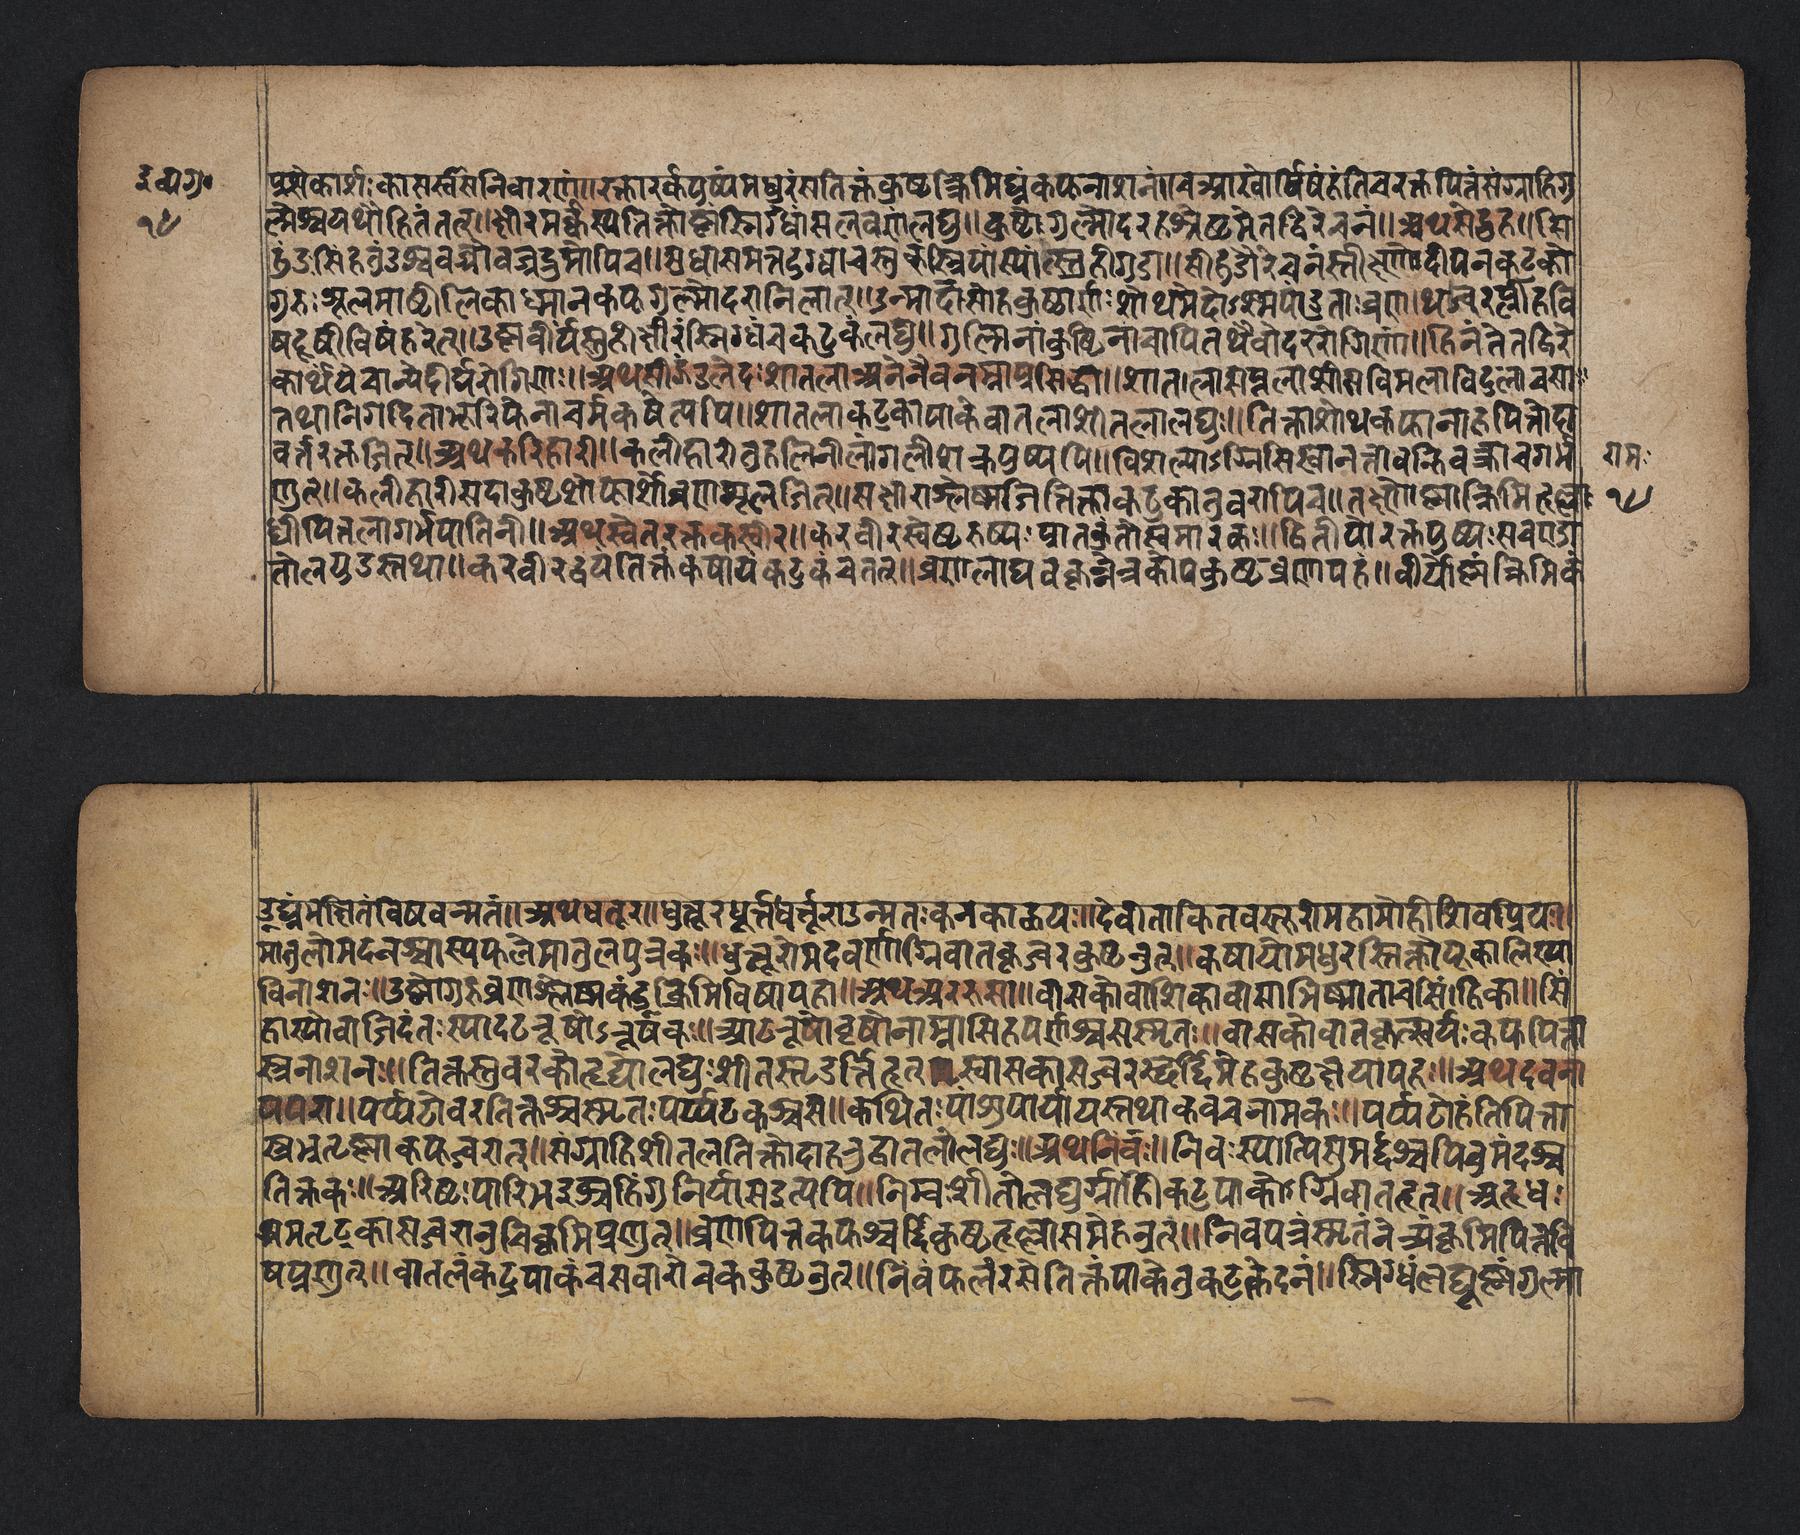 द्रव्यगु॰
१५
प्रसेकार्शःकासस्वसनिवारणं॥रक्तारर्कपुष्पंमधुरंसतिक्तंकुष्टक्रिमिघ्नंकफनाशनं॥चआखोर्विषंहंतिचरक्तपित्तंसंग्राहिगु
ल्मेश्वयथौहितंतत्॥क्षीरमर्कस्यतिक्तोष्णंस्निग्धंसलवणंलघु॥कुष्टगुल्मोदरहरंश्रेष्टमेतद्विरेचनं॥अथसेहुड॥सि
हुंडसिंहतुंडश्चवज्रीवज्रद्रुमोपिच॥सुधासमन्तदुग्धाचस्नुकस्त्रियांस्यात्स्नुहीगुडा॥सीहुडोरेचनस्तीक्ष्णोदीपनकटुको
गुरुःशूलमाष्टीलिकाध्मानकफगुल्मोदरानिलात्॥उन्मादमोहकुष्ठार्शःशोथमेदोश्मपांडुताःव्रणशोथज्वरप्लीहवि
षदूषीविषंहरेत्॥उष्णवीर्यंस्नुहीक्षीरंस्निग्धंचकटुकंलघु॥गुल्मिनांकुष्टिनांचापितथैवोदररोगिणां॥हितमेतद्विरे
कार्थेयेचान्येदीर्घरोगिणः॥अथसीउंडभेदःशातलाअनेनैवनाम्नाप्रसिद्धा॥शातलासप्तलासारीविमलाविदुलाचसा
तथानिगदिताभूरिफेनाचर्मकषेत्यपि॥शातलाकटुकापाकेवातलाशीतलालघुः॥तिक्ताशोथकफानाहपित्तोदा
वर्त्तरक्तजित्॥अथकरिहारी॥कलीहारीतुहलिनीलांगलीशक्रपुष्प्यपि॥विशल्याऽग्निसिखानन्तावह्निवक्त्राचगर्भ
राम
नुत्॥कलीहारीसदाकुष्टशोफार्शोव्रणशूलजित्॥सक्षाराश्लेष्मजित्तिक्ताकटुकातुवरापिच॥तीक्ष्णोष्णाक्रिमिहृल्ल
१५
घ्वीपित्तलागर्भपातिनी॥अथस्वेतरक्तकरवीर॥करवीरस्वेष्टपुष्पःघातकुंतोस्वमारकः॥द्वितीयोरक्तपुष्पःसचण्डा
तोलगुडस्तथा॥करवीरद्वयंतिक्तंकषायंकटुकंचतत्॥व्रणलाघवकृन्नेत्रकोपकुष्टव्रणापहं॥वीर्योष्णंक्रिमिकं
डुघ्नंभक्षितंविषवन्मतं॥अथधतूर॥धुत्तूरधूर्त्तधर्त्तूराउन्मतःकनकाह्वयः॥देवीताकितवस्तूरीमहामोहीशिवप्रियः॥
मातुलोमदनश्चास्यफलेमातुलपुत्रकः॥धुत्तूरोमदवर्णाग्निवातकृज्वरकुष्टनुत्॥कषायोमधुरस्तिक्तोयूकालिख्या
विनाशनः॥उष्णोगुरुर्व्रणश्लेष्मकंडुक्रिमिविषापहा॥अथअररुसा॥वासकोवाशिकावासाभिषङ्माताचसिंहिका॥सिं
हास्योवाजिदंतःस्यादटरूषोऽरूषकः॥आटरूषोवृषोनाम्नासिंहपर्णश्चसस्मृतः॥वासकोवातकृत्स्वर्यःकफपित्ता
स्त्रनाशनः॥तिक्तस्तुवरकोहृद्योलघुःशीतस्तृडर्त्तिहृत्स्वासकासज्वरस्छर्द्दिमेहकुष्टक्षयापहः॥अथदवना
पपरा॥पर्प्पटोवरतिक्तश्चस्मृतःपर्प्पटकश्चस॥कथितःपांशुपार्यायस्तथाकवचनामकः॥पर्प्पटोहंतिपित्ता
स्त्रभ्रतृष्णाकफज्वरान्॥संग्राहिशीतलतिक्तोदाहनुद्वातलोलघुः॥अथनिंवः॥निवःस्यात्पिसुमर्द्दश्चपिचुमंदश्च
तिक्तकः॥अरिष्टःपारिभद्रश्चहिंगुनिर्यासइत्यपि॥निम्वःशीतोलघुर्ग्राहीकटुपाकोग्निवातहृत्॥अहृधः
श्रमतृट्कासज्वरानुचिक्रमिप्रणुत्॥व्रणपित्तकफश्चर्द्दिकुष्टहृल्लासमेहनुत्॥निंवपत्रंस्मृतंनेत्र्यंकृमिपित्तवि
षप्रणुत्॥वातलंकटुपाकंचसर्वारोचककुष्टनुत्॥निंवंफलंरसेतिक्तंपाकेतुकटुभेदनं॥स्निग्धंलघूष्णंगुल्मा